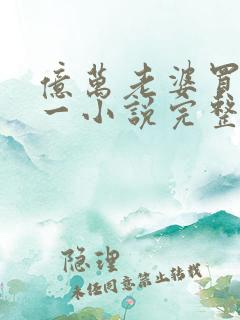 億萬老婆買
一小說完整
隐理
未经同意禁止转载